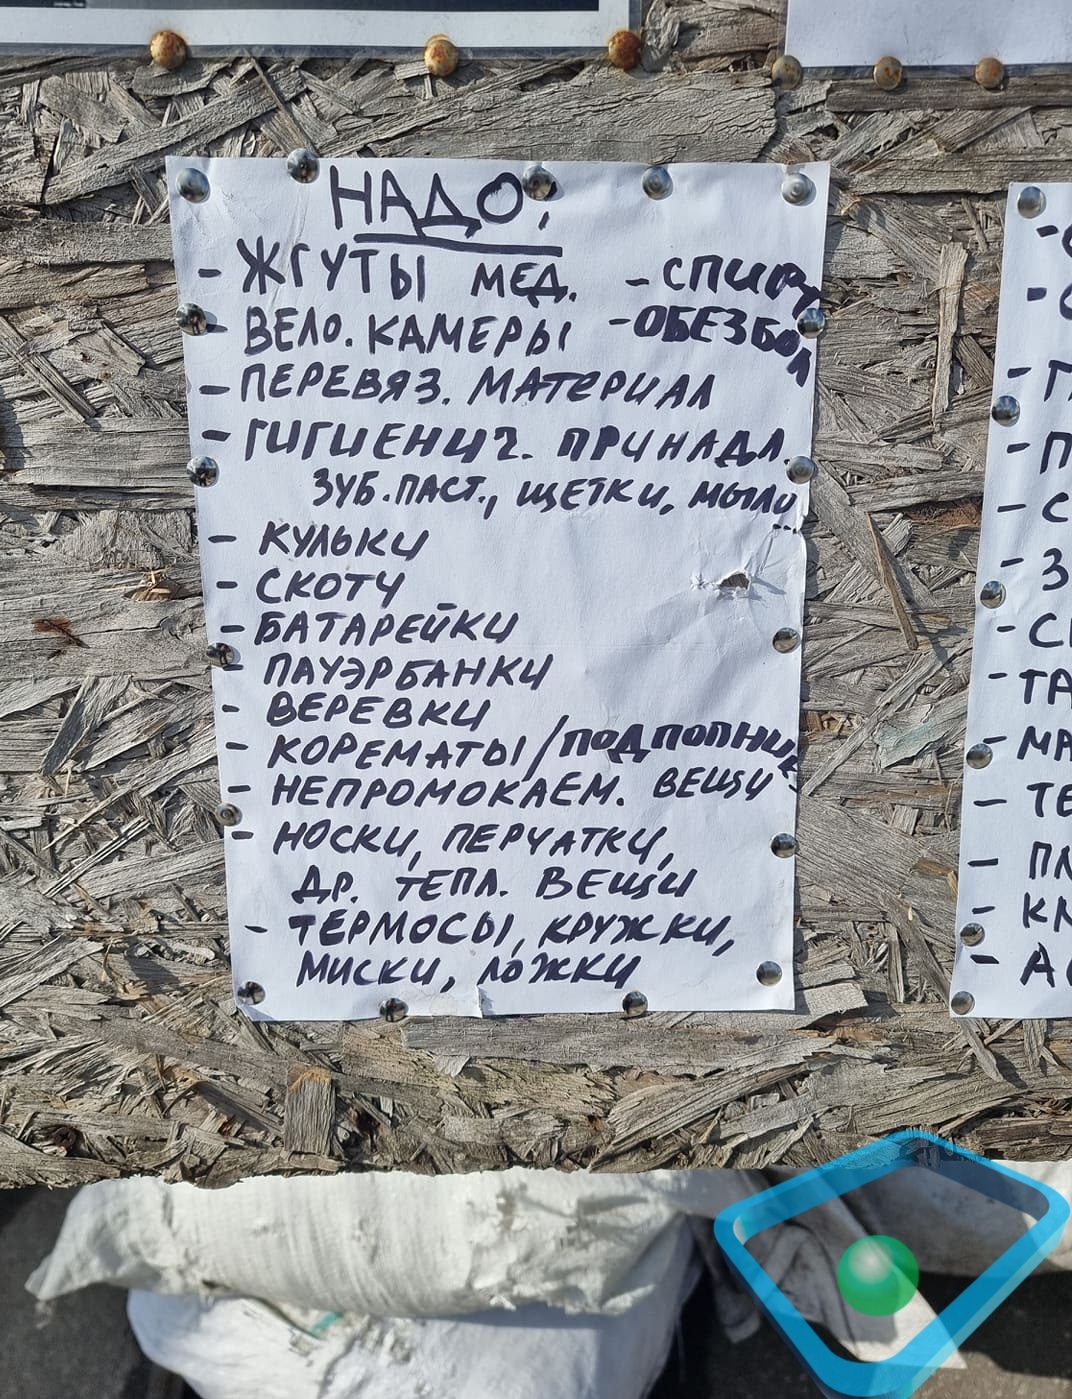 НАДО:
- ЖГУТЫ МЕД. - СПИРТ
- ВЕЛО. КАМЕРЫ - ОБЕЗБОЛ
- ПЕРЕВЯЗ. МАТЕРИАЛ
- ГИГИЕНИЧ. ПРИНАДЛ.
ЗУБ.ПАСТ., ЩЕТКИ, МЫЛО...
- КУЛЬКИ
- СКОТЧ
- БАТАРЕЙКИ
- ПАУЭРБАНКИ
- ВЕРЕВКИ
- КОРЕМАТЫ / ПОДПОПНИК
- НЕПРОМОКАЕМ. ВЕЩИ
- НОСКИ, ПЕРЧАТКИ,
ДР. ТЕПЛ. ВЕЩИ
- ТЕРМОСЫ, КРУЖКИ,
МИСКИ, ЛОЖКИ